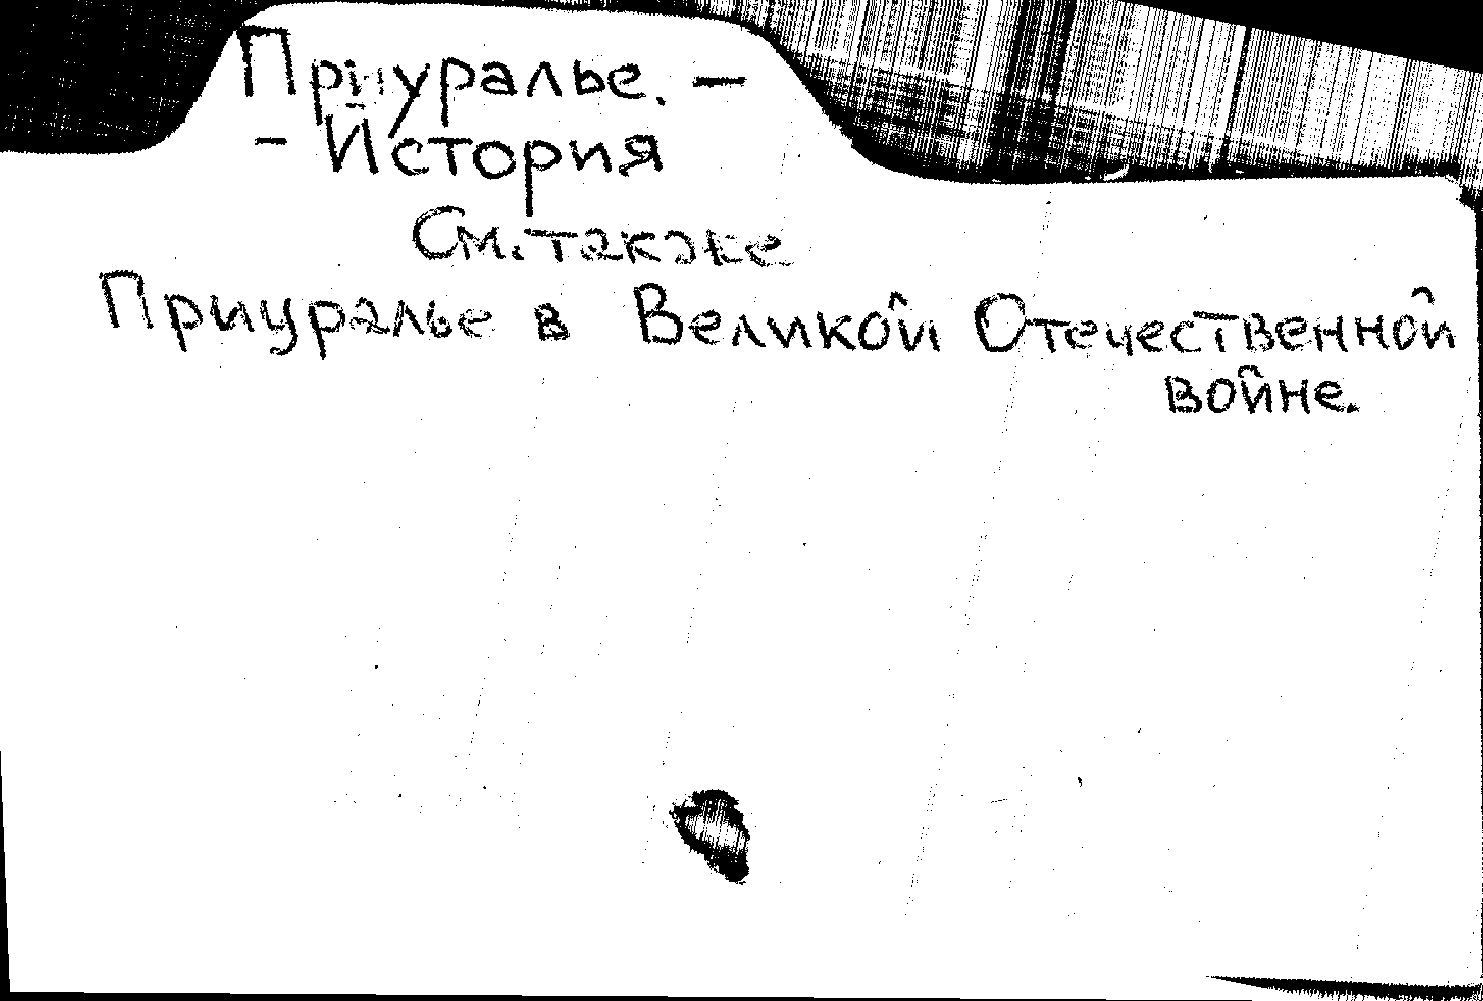 Приуралье. –
– История
См. также
Приуралье в Великой Отечественной
войне.